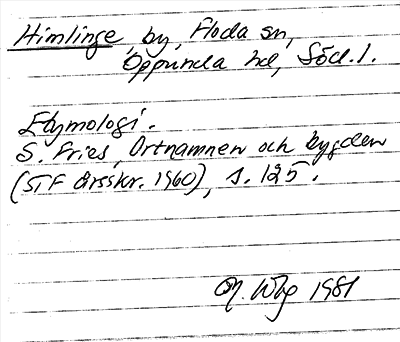 Himlinge, by, Floda sn,
Oppunda hd, Söd.l.
Etymologi.
S. Fries, Ortnamnen och bygden
(STF årsskr. 1960), s. 125.
1981